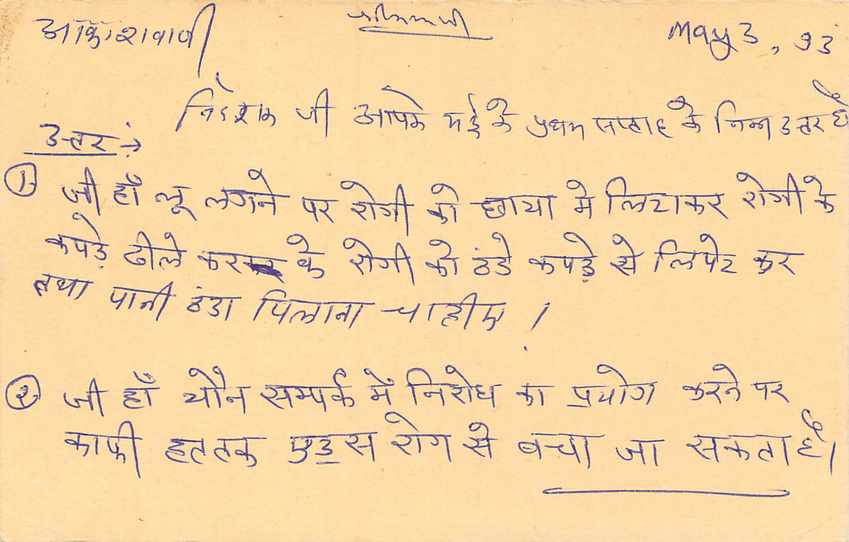 आकाशवाणी May 3, 93
निदेशक जी आपके मई के प्रथम सप्ताह के निम्न उत्तर है
उत्तर :→
① जी हाँ लू लगने पर रोगी को छाया मे लिटाकर रोगी के
कपड़े ढीले कर के रोगी को ठंडे कपड़े से लिपेट कर
तथा पानी ठंडा पिलाना चाहीए ।
② जी हाँ यौन सम्पर्क में निरोध का प्रयोग करने पर
काफी हततक एड्स रोग से बचा जा सकता है।